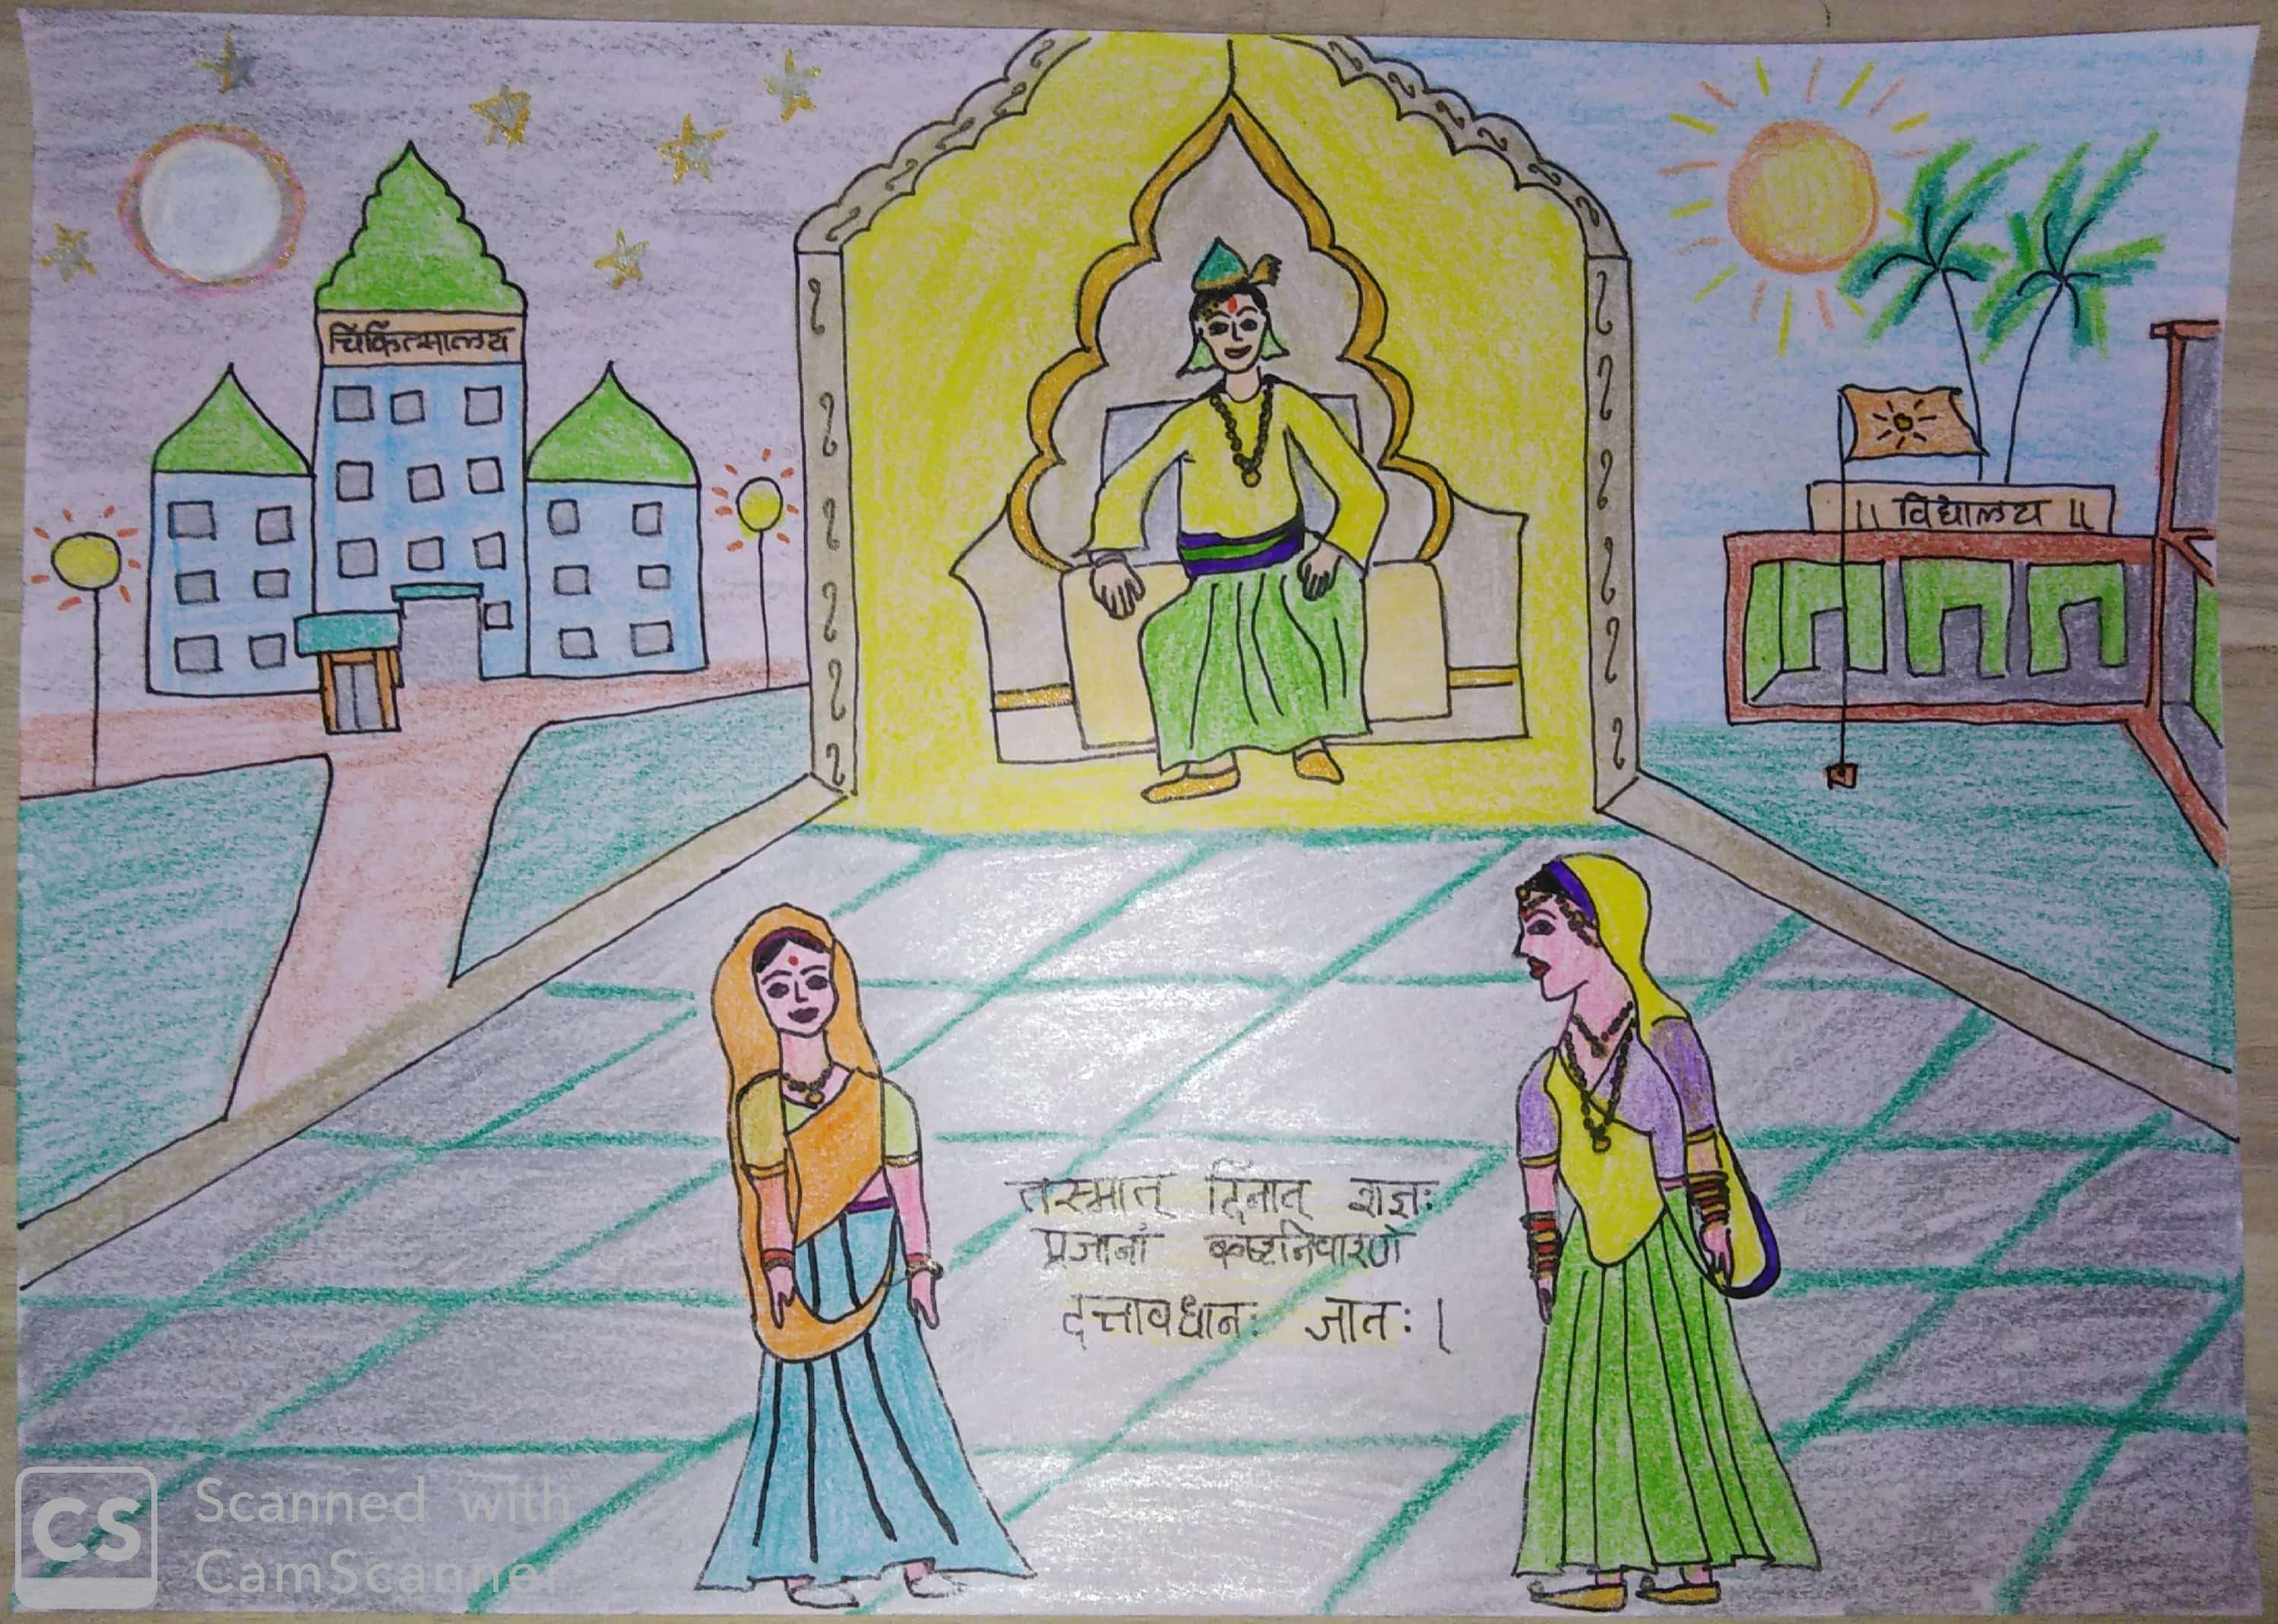 चिकित्सालय
॥ विद्यालय ॥
तस्मात् दिनात् राज्ञः
प्रजानां कष्टनिवारणे
दत्तावधानः जातः।
CS Scanned with
CamScanner